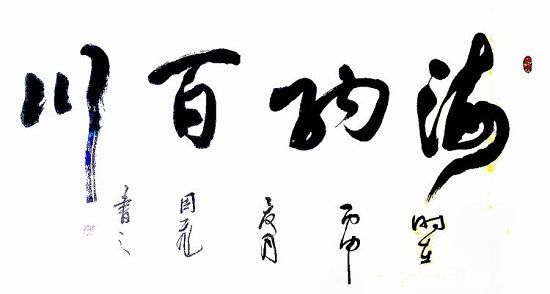 海纳百川
时在
丙申
夏月
書之